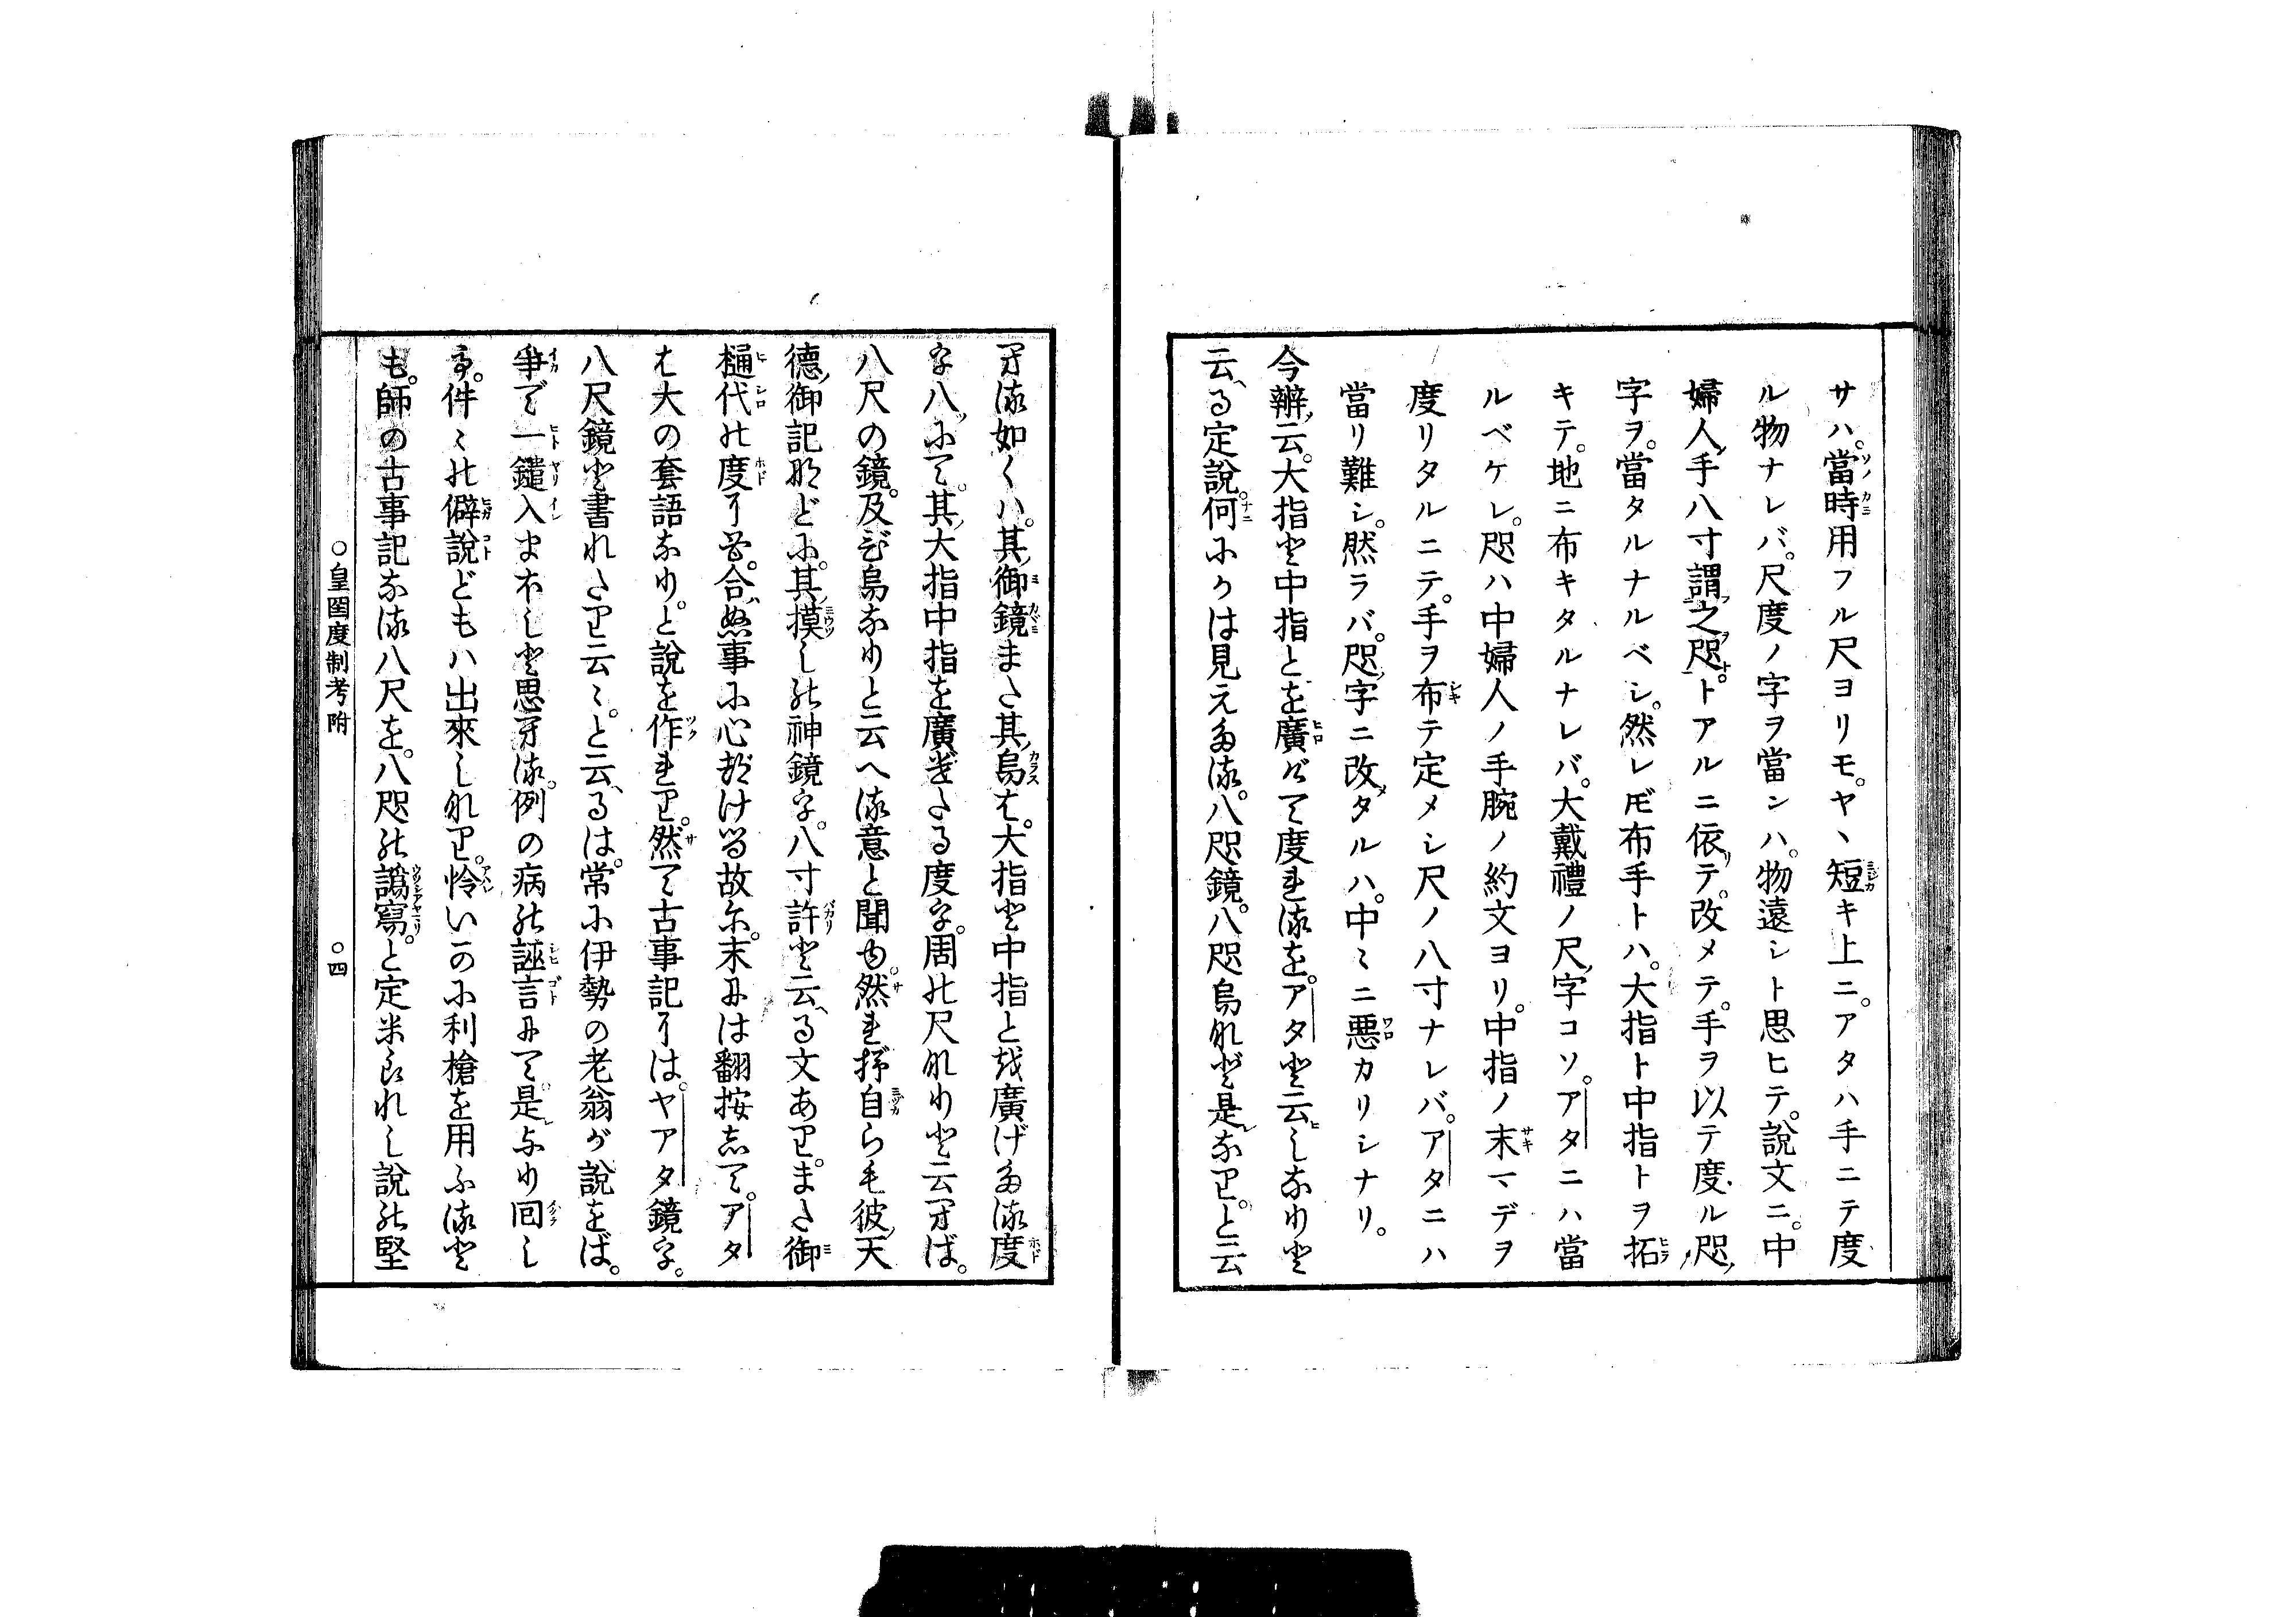 サハ。當時用フル尺ヨリモ。ヤヽ短キ上ニ。アタハ手ニテ度
ル物ナレバ。尺度ノ字ヲ當ンハ。物遠シト思ヒテ。說文ニ。中
婦人手八寸謂之咫。トアルニ依テ。改メテ。手ヲ以テ度ル咫ノ
字ヲ。當タルナルベシ。然レ𪜈布手トハ。大指ト中指トヲ拓
キテ。地ニ布キタルナレバ。大戴禮ノ尺ノ字コソ。アタニハ當
ルベケレ。咫ハ中婦人ノ手腕ノ約文ヨリ。中指ノ末マデヲ
度リタルニテ。手ヲ布テ定メシ尺ノ八寸ナレバ。アタニハ
當リ難シ。然ラバ。咫ノ字ニ改メタルハ。中〻ニ悪カリシナリ。
今辨ノ云。大指と中指とを廣げて度れるを。アタと云しなりと
云、る定說。何にかは見えたる。八咫鏡。八咫烏など是なり。と云
する如くハ。其ノ御鏡また其ノ烏は。大指と中指とを廣げたる度
を八ツにて。其ノ大指中指を廣げたる度を。周の尺なりと云すば。
八尺の鏡。及び烏なりと云へる意と聞ゆ。然れど自らも彼ノ天
德ノ御記などに。其ノ摸しの神鏡を。八寸許と云、る文あり。また御
樋代の度にも。合ぬ事に心づける故に。末には翻按して。アタ
は大の套語なり。と說を作れり。然て古事記には。ヤアタ鏡を。
八尺鏡と書れたり云〻。と云、るは。常に伊勢の老翁が說をば。
爭で一鑓入まほしと思する。例の病の誣言にて是より回し
も。件〻の僻說どもハ出來しなり。怜いかに利槍を用ふると
も。師の古事記なる八尺を。八咫の譌寫。と定め られし說の堅
○皇國度制考附　○四